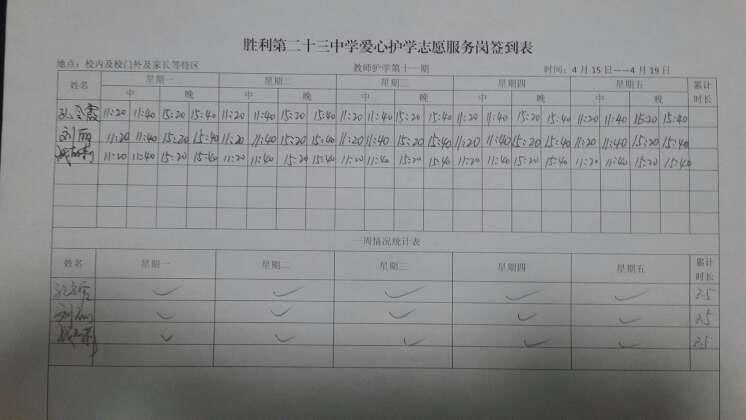 胜利第二十三中学爱心护学志愿服务岗签到表
地点：校内及校门外及家长等特区 教师护学第十一期 时间：4月15日——4月19日
姓名 星期一 星期二 星期三 星期四 星期五 累计时长
中 晚 中 晚 中 晚 中 晚 中 晚
11:20 11:40 15:20 15:40 11:20 11:40 15:20 15:40 11:20 11:40 15:20 15:40 11:20 11:40 15:20 15:40 11:20 11:40 15:20 15:40
刘丽 11:20 11:40 15:20 15:40 11:20 11:40 15:20 15:40 11:20 11:40 15:20 15:40 11:20 11:40 15:20 15:40 11:20 11:40 15:20 15:40
11:20 11:40 15:20 15:40 11:20 11:40 15:20 15:40 11:20 11:40 15:20 15:40 11:20 11:40 15:20 15:40 11:20 11:40 15:20 15:40
一周情况统计表
姓名 星期一 星期二 星期三 星期四 星期五 累计时长
3.5
刘丽 3.5
3.5